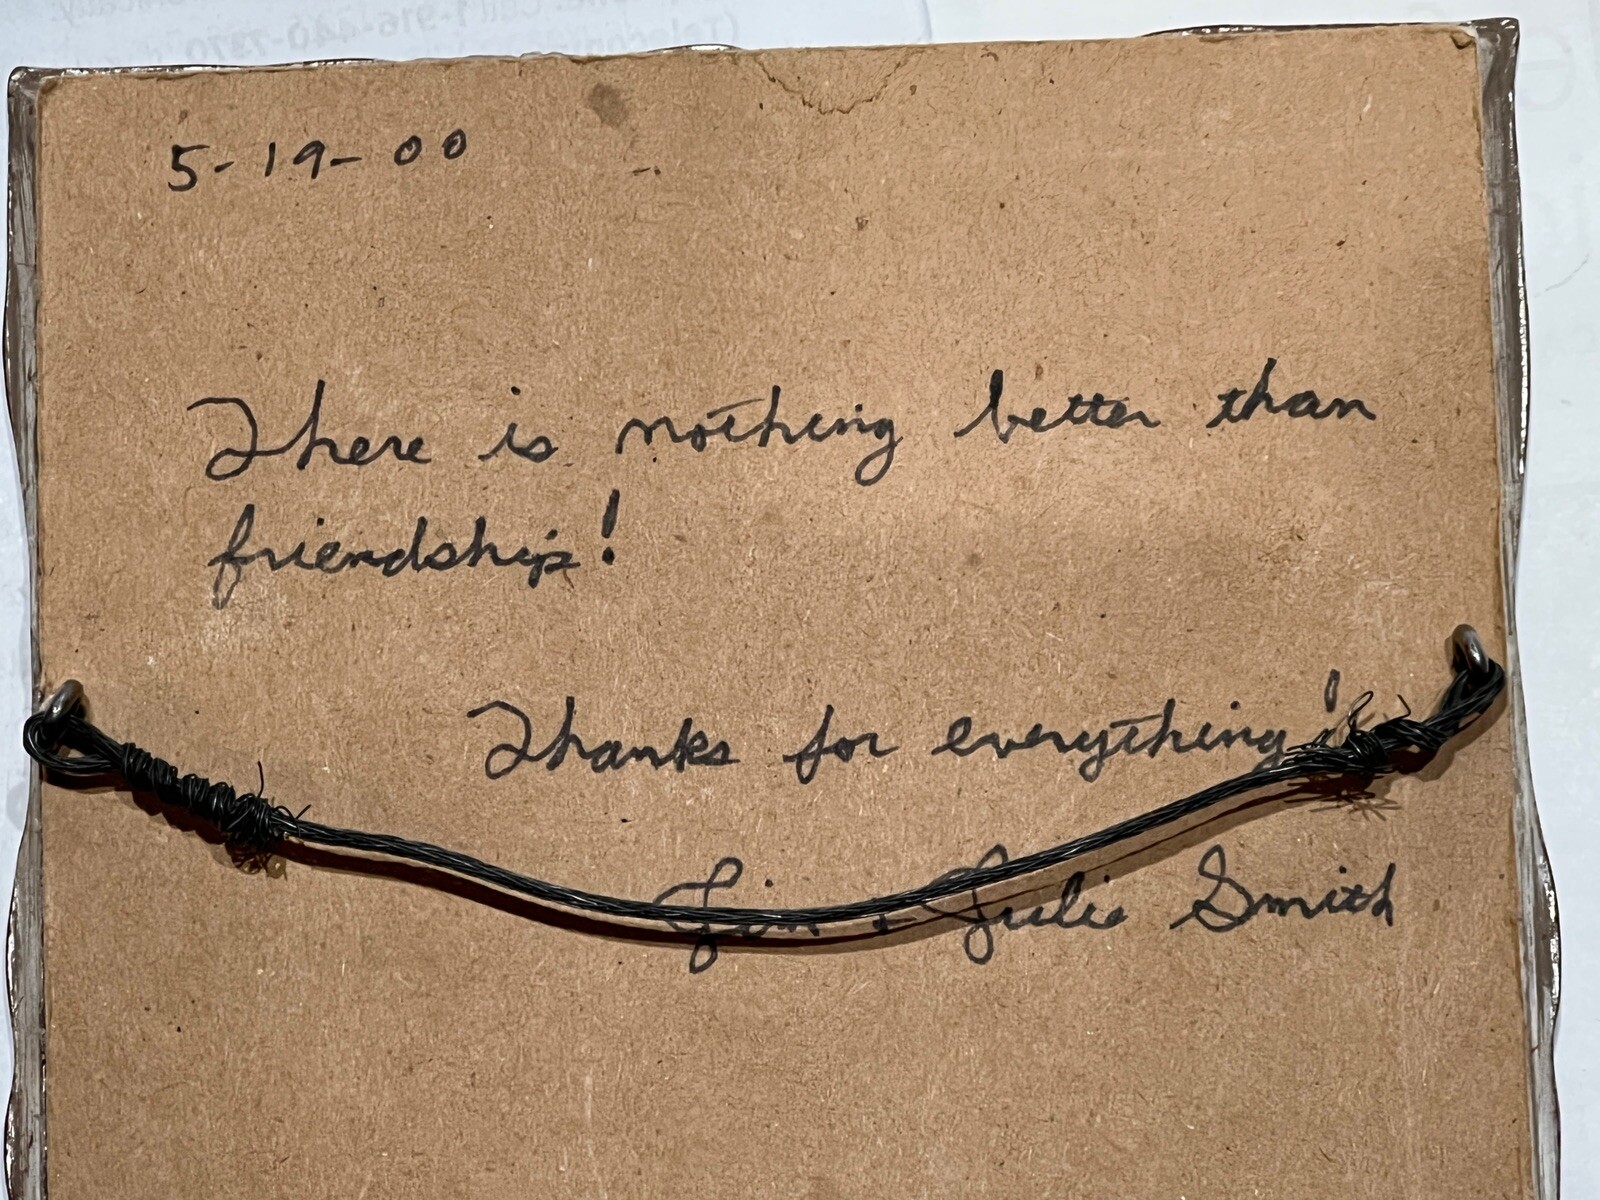 5-19-00
There is nothing better than
friendship!
Thanks for everything!
Jim + Julie Smith